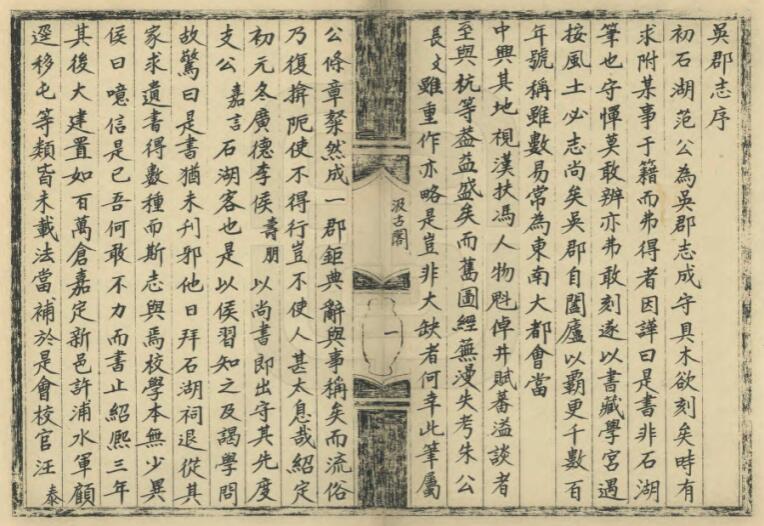 吳郡志序
初石湖范公為吳郡志成守具木欲刻矣時有
求附某事于籍而弗得者因譁曰是書非石湖
筆也守憚莫敢辨亦弗敢刻遂以書藏學宮遇
按風土必志尚矣吳郡自闔廬以霸更千數百
年號稱雖數易常為東南大都會當
中興其地視漢扶馮人物魁倬井賦蕃溢談者
至與杭等蓋益盛矣而舊圖經蕪漫失考朱公
長文雖重作亦略是豈非大缺者何幸此筆屬
汲古閣
一
公條章粲然成一郡鉅典辭與事稱矣而流俗
乃復揜阨使不得行豈不使人甚太息哉紹定
初元冬廣德李侯壽朋以尚書即出守其先度
支公嘉言石湖客也是以侯習知之及謁學問
故驚曰是書猶未刊邪他日拜石湖祠退從其
家求遺書得數種而斯志與焉校學本無少異
侯曰噫信是已吾何敢不力而書止紹熙三年
其後大建置如百萬倉嘉定新邑許浦水軍顧
逕移屯等類皆未載法當補於是會校官汪泰